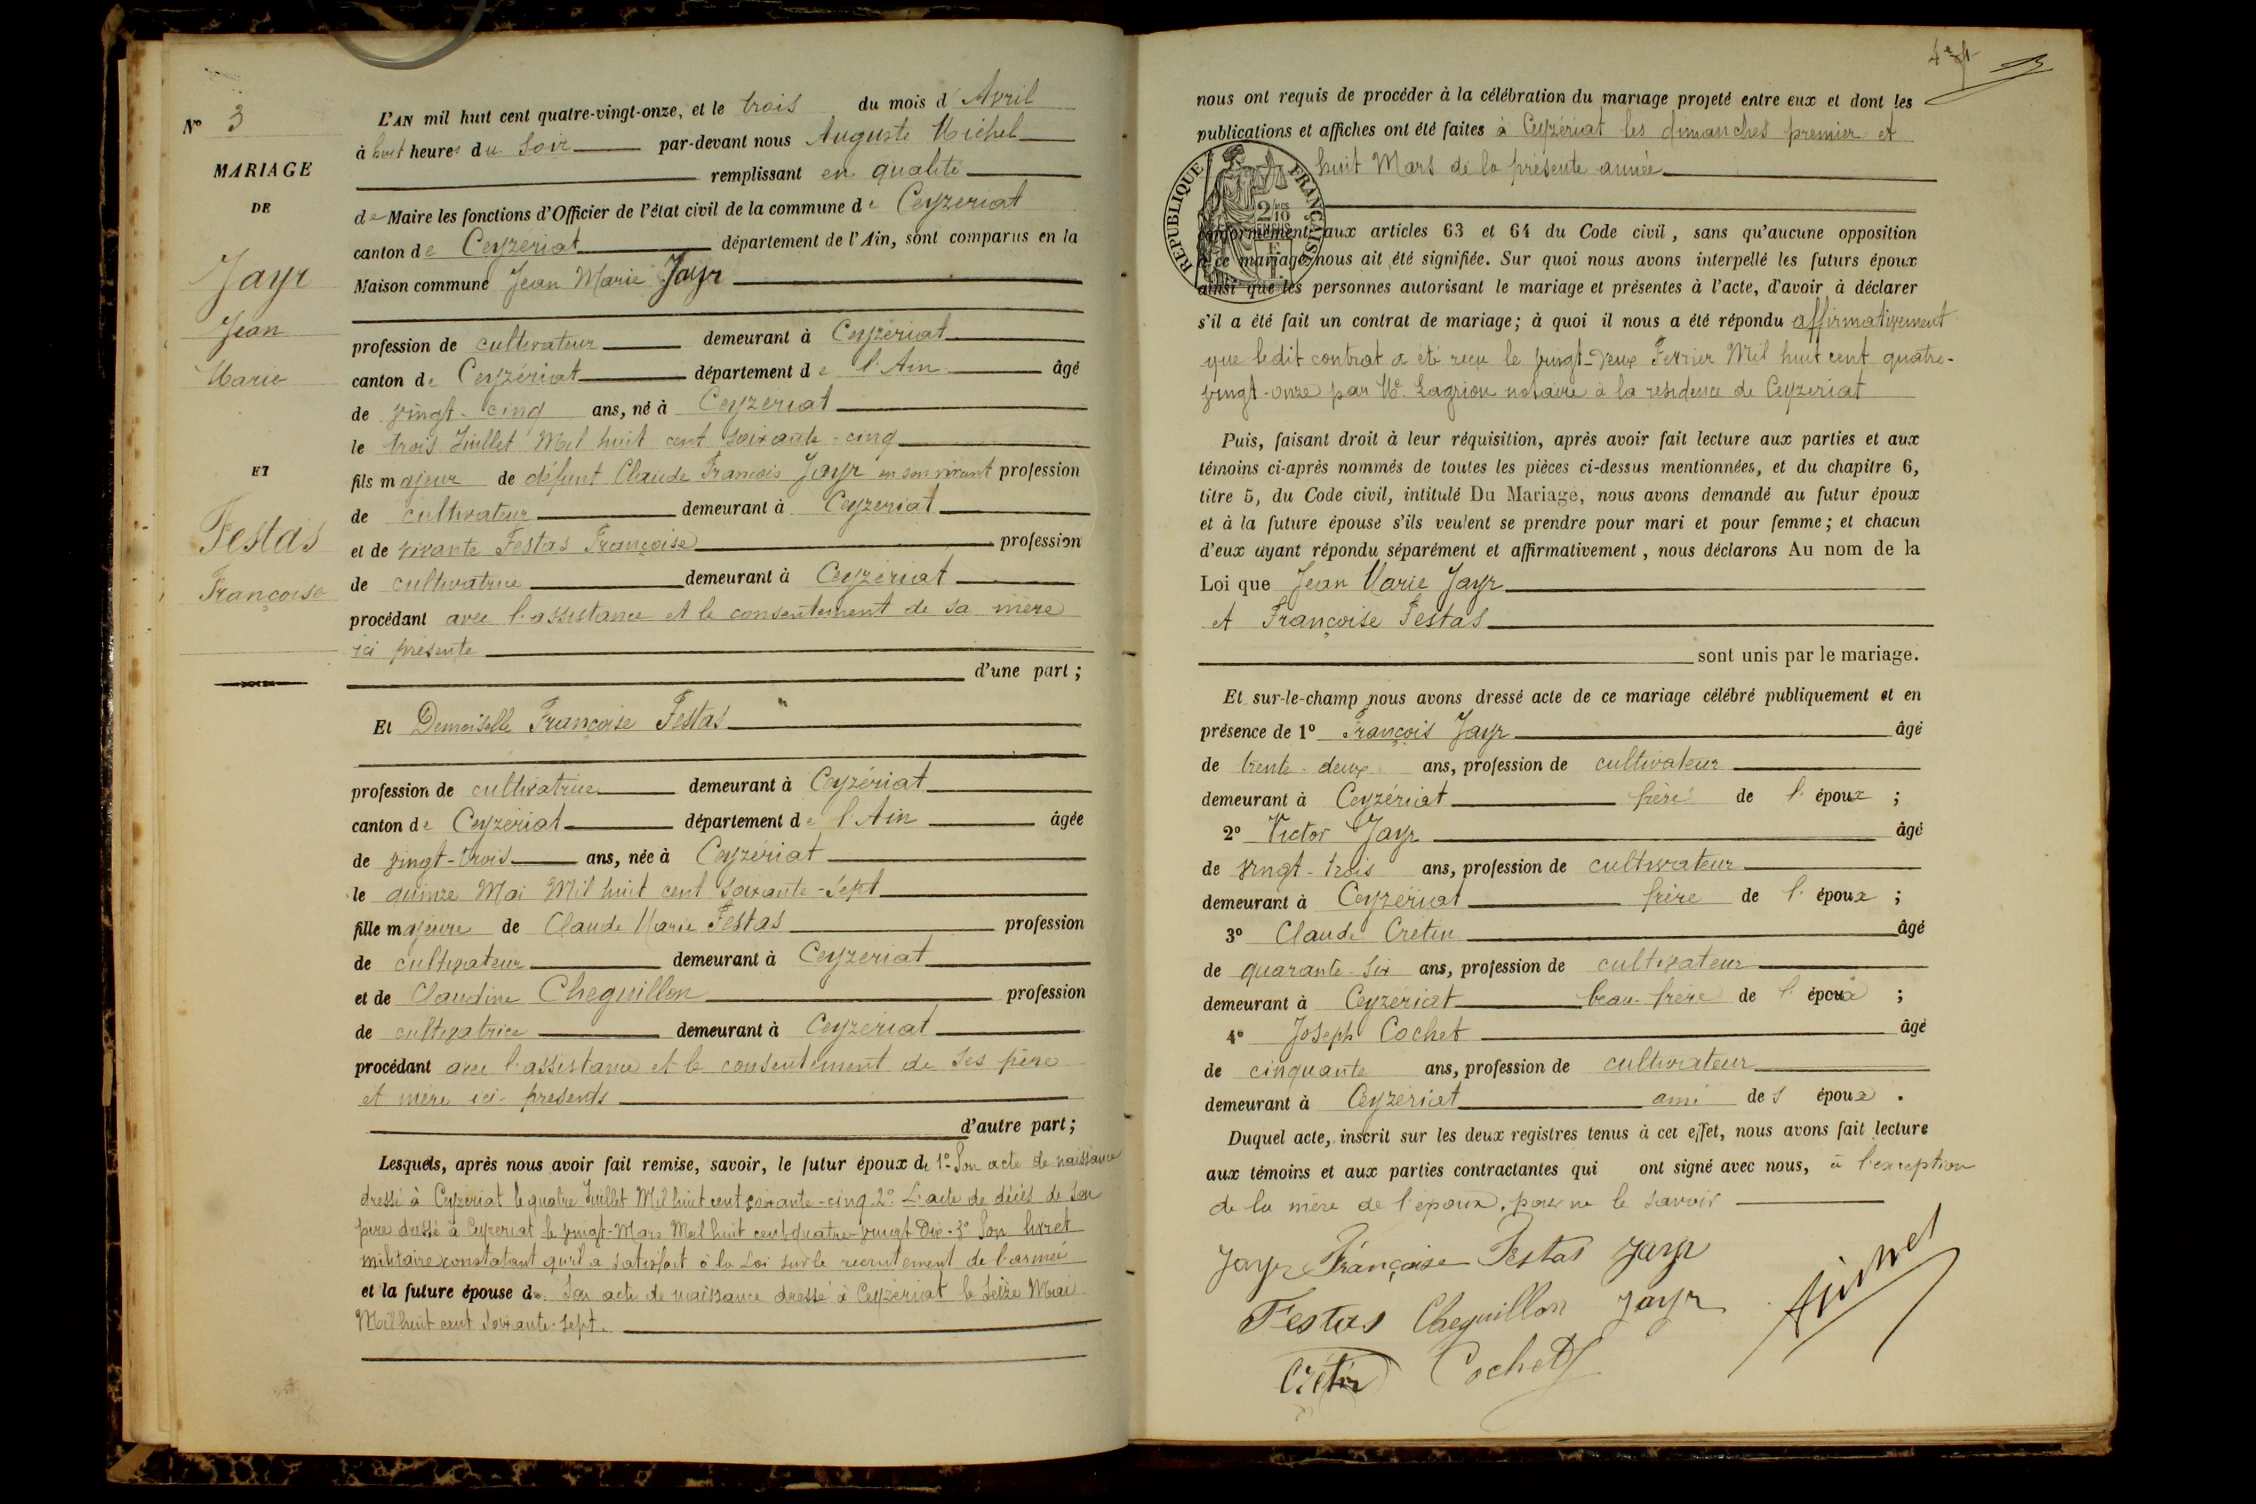 N° 3
MARIAGE
DE
Jayr
Jean
Marie
ET
Festas
Françoise
L'AN mil huit cent quatre-vingt-onze, et le trois du mois d'Avril
à huit heures du Soir par-devant nous Auguste Michel
remplissant en qualité
de Maire les fonctions d'Officier de l'état civil de la commune de Ceyzériat
canton de Ceyzériat département de l'Ain, sont comparus en la
Maison commune Jean Marie Jayr
profession de cultivateur demeurant à Ceyzériat
canton de Ceyzériat département de l'Ain âgé
de vingt-cinq ans, né à Ceyzeriat
le trois Juillet Mil huit cent soixante-cinq
fils majeur de défunt Claude François Jayr en son vivant profession
de cultivateur demeurant à Ceyzeriat
et de vivante Festas Françoise profession
de cultivatrice demeurant à Ceyzériat
procédant avec l'assistance et le consentement de sa mère
ici présente
d'une part ;
Et Demoiselle Françoise Festas
profession de cultivatrice demeurant à Ceyzériat
canton de Ceyzériat département de l'Ain âgée
de vingt-trois ans, née à Ceyzériat
le quinze Mai Mil huit cent soixante-sept
fille majeure de Claude Marie Festas profession
de cultivateur demeurant à Ceyzeriat
et de Claudine Cheguillon profession
de cultivatrice demeurant à Ceyzériat
procédant avec l'assistance et le consentement de ses père
et mère ici présents
d'autre part ;
Lesquels, après nous avoir fait remise, savoir, le futur époux de 1° Son acte de naissance
dressé à Ceyzériat le quatre Juillet Mil huit cent soixante-cinq. 2° L'acte de décès de son
père dressé à Ceyzeriat le vingt-Mars Mil huit cent quatre-vingt Dix. 3° Son livret
militaire constatant qu'il a satisfait à la Loi sur le recrutement de l'armée
et la future épouse de Son acte de naissance dressé à Ceyzériat le Seize Mai
Mil huit cent soixante-sept.
nous ont requis de procéder à la célébration du mariage projeté entre eux et dont les
publications et affiches ont été faites à Ceyzériat les dimanches premier et
huit Mars de la présente année
RÉPUBLIQUE FRANÇAISE
conformément aux articles 63 et 64 du Code civil, sans qu'aucune opposition
à ce mariage nous ait été signifiée. Sur quoi nous avons interpellé les futurs époux
ainsi que les personnes autorisant le mariage et présentes à l'acte, d'avoir à déclarer
s'il a été fait un contrat de mariage; à quoi il nous a été répondu affirmativement
que ledit contrat a été reçu le vingt-deux Février Mil huit cent quatre-
vingt-onze par Me Lagrion notaire à la résidence de Ceyzeriat
Puis, faisant droit à leur réquisition, après avoir fait lecture aux parties et aux
témoins ci-après nommés de toutes les pièces ci-dessus mentionnées, et du chapitre 6,
titre 5, du Code civil, intitulé Du Mariage, nous avons demandé au futur époux
et à la future épouse s'ils veulent se prendre pour mari et pour femme; et chacun
d'eux ayant répondu séparément et affirmativement, nous déclarons Au nom de la
Loi que Jean Marie Jayr
et Françoise Festas
sont unis par le mariage.
Et sur-le-champ nous avons dressé acte de ce mariage célébré publiquement et en
présence de 1° François Jayr âgé
de trente-deux ans, profession de cultivateur
demeurant à Ceyzériat frère de l'époux ;
2° Victor Jayr âgé
de vingt-trois ans, profession de cultivateur
demeurant à Ceyzériat frère de l'époux ;
3° Claude Cretin âgé
de quarante-six ans, profession de cultivateur
demeurant à Ceyzériat beau-frère de l'époux ;
4° Joseph Cochet âgé
de cinquante ans, profession de cultivateur
demeurant à Ceyzeriat ami des époux .
Duquel acte, inscrit sur les deux registres tenus à cet effet, nous avons fait lecture
aux témoins et aux parties contractantes qui ont signé avec nous, à l'exception
de la mère de l'époux, pour ne le savoir
Jayr Françoise Festas Jayr
Festas Cheguillon Jayr
Crétin Cochet